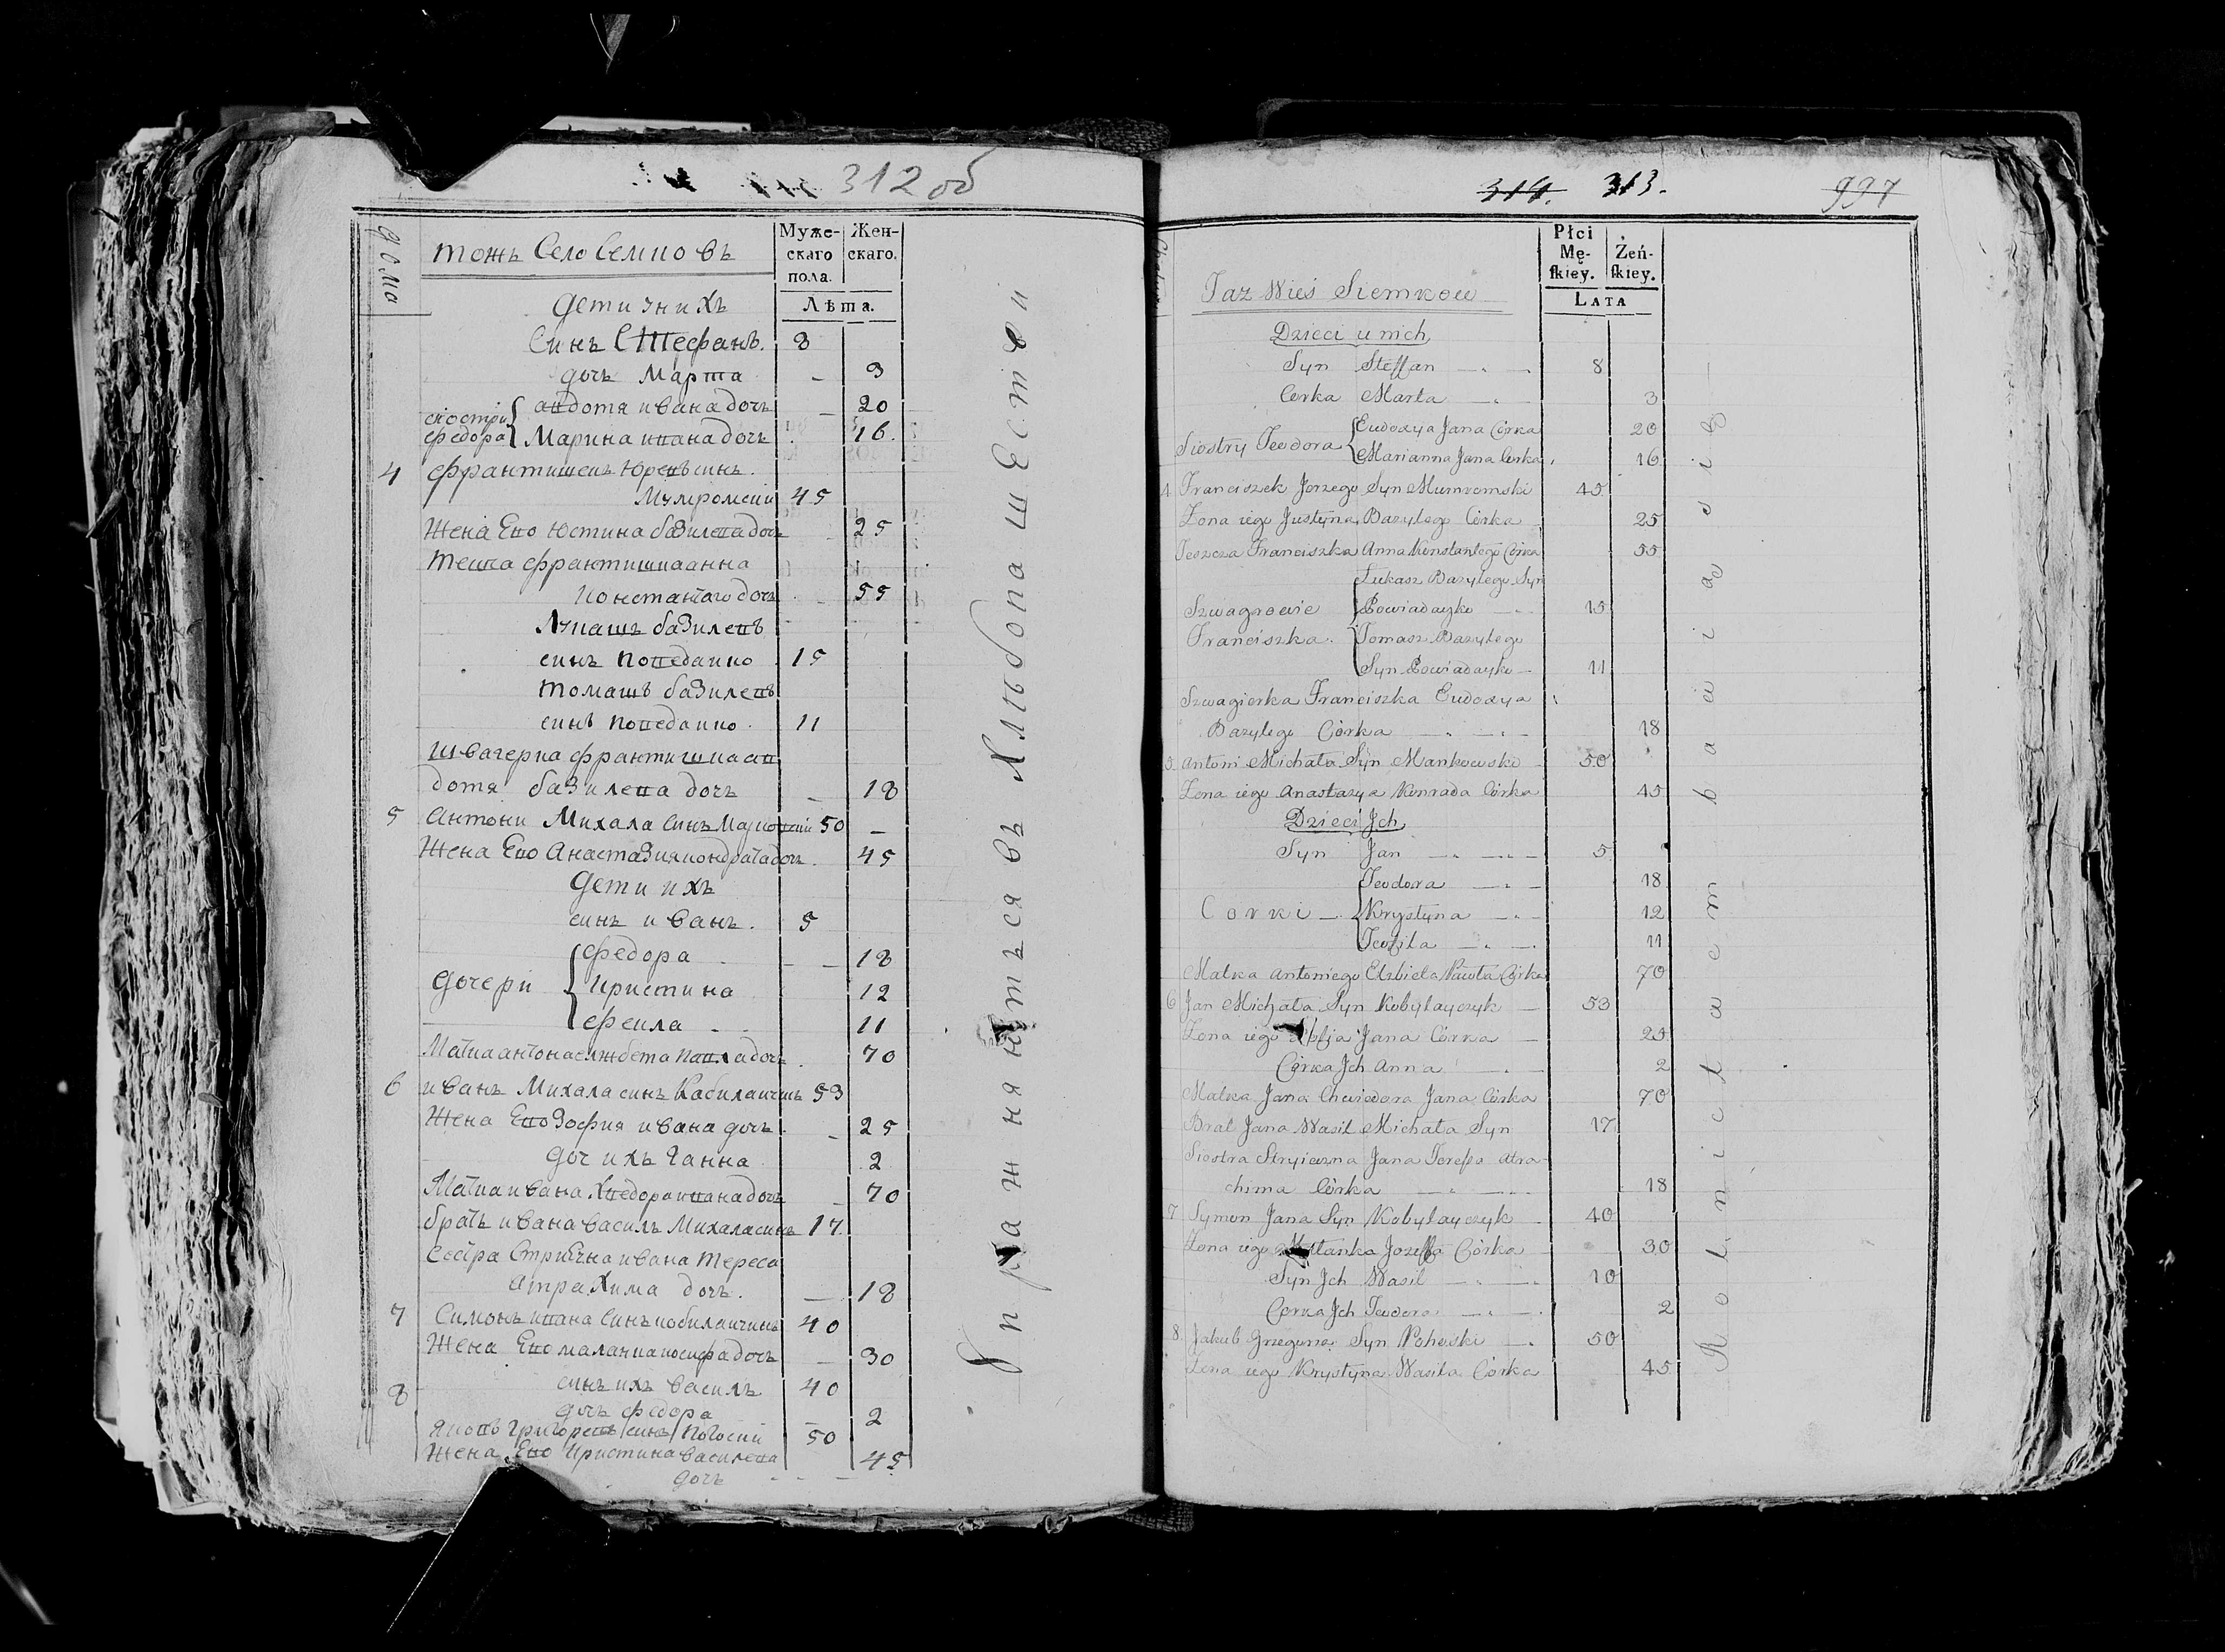 312 об
дома
тожъ Село Семновъ
Муже-
скаго
пола.
Жен-
скаго.
Лѣта.
Дети знихъ
Синъ Стефанъ. 8
дочъ Марта - 3
сиостри федора { андотя ивана дочъ - 20
Марина ивана дочъ 16.
4 франтишекъ Юревъ синъ.
45
Жена Его Юстина базилева дочъ 25
тешча франтишка анна
константаго дочъ 55
Лукашъ базилевъ
синъ поведайко 15
томашъ базилевъ
синъ поведайко. 11
швагерка франтишка ав
дотя базилева дочъ - 18
5 Антони Михала Синъ 50 -
Жена Его Анастазия кондрата дочъ. 45
Дети ихъ
синъ иванъ. 5
дочери { федора - - 18
кристина 12
11
Матка антона елжбета павла дочъ 70
6 иванъ Михала синъ 53
Жена Его Зофия ивана дочъ. - 25
доч ихъ Ганна 2
Матка ивана Хведора ивана дочъ - 70
братъ ивана василъ Михала синъ 17.
Сестра Стриечна ивана тереса
атрахима дочъ. - 18
7 Симонъ ивана синъ кобилайчикъ 40
Жена Его маланка иосифа дочъ - 30
синъ ихъ василъ 40
дочъ федора - 2
8 якобъ григоревъ синъ погоски 50
Жена Его кристина василева 45
дочъ - - -
упражняютъся въ Хлѣбопашестви
314. 313. 997
Taz Wieś Siemkow
Płci
Mę-
skiey.
Żeń-
skiey.
LATA
Dzieci u nich
Syn Steffan 8
Corka Marta 3
Siostry Teodora { Eudoxya Jana Córka 20
Marianna Jana Corka 16
4 Franciszek Jorzego Syn Mumromski 45
Zona iego Justyna Bazylego Córka 25
Teszcza Franciszka Anna Konstantego Córka 55
Szwagrowie Franciszka { Łukasz Bazylego Syn
Powiadayko 15
Tomasz Bazylego
Syn Powiadayko 11
Szwagierka Franciszka Eudoxya
Bazylego Córka 18
5 Antoni Michała Syn Mankowski 50
Zona iego Anastazya Konrada Córka 45
Dzieci Jch
Syn Jan 5
Corki { Teodora 18
Krystyna 12
Teofila 11
Matka Antoniego Elzbieta Pawła Córka 70
6 Jan Michała Syn Kobyłayczyk 53
Zona iego Zofia Jana Córka 25
Córka Jch Anna 2
Matka Jana Chwiedora Jana Córka 70
Brat Jana Wasil Michała Syn 17
Siostra Stryieczna Jana Teressa Atra-
chima Córka 18
7 Symon Jana Syn Kobyłayczyk 40
Zona iego Józeffa Córka 30
Syn Jch Wasil 10
Corka Jch Teodora 2
8 Jakub Grzegorza Syn Pohoski 50
Zona iego Krystyna Wasila Córka 45
Rolnictwem bawią się